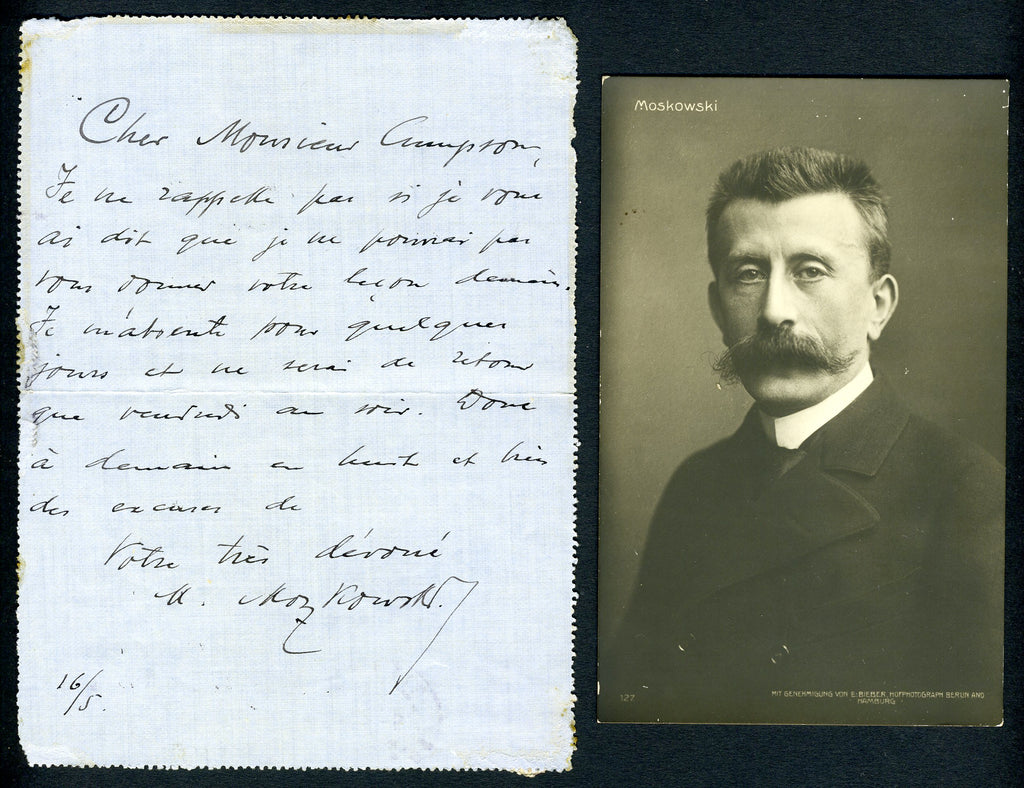 Cher Monsieur Cumpson,
Je ne rappelle pas si je vous
ai dit que je ne pourrai pas
vous donner votre leçon demain.
Je m'absente pour quelques
jours et ne serai de retour
que vendredi au soir. Donc
à demain en huit et bien
des excuses de
Votre très dévoué
M. Moszkowski.
16/5.
Moskowski
127
MIT GENEHMIGUNG VON E. BIEBER, HOFPHOTOGRAPH BERLIN AND
HAMBURG